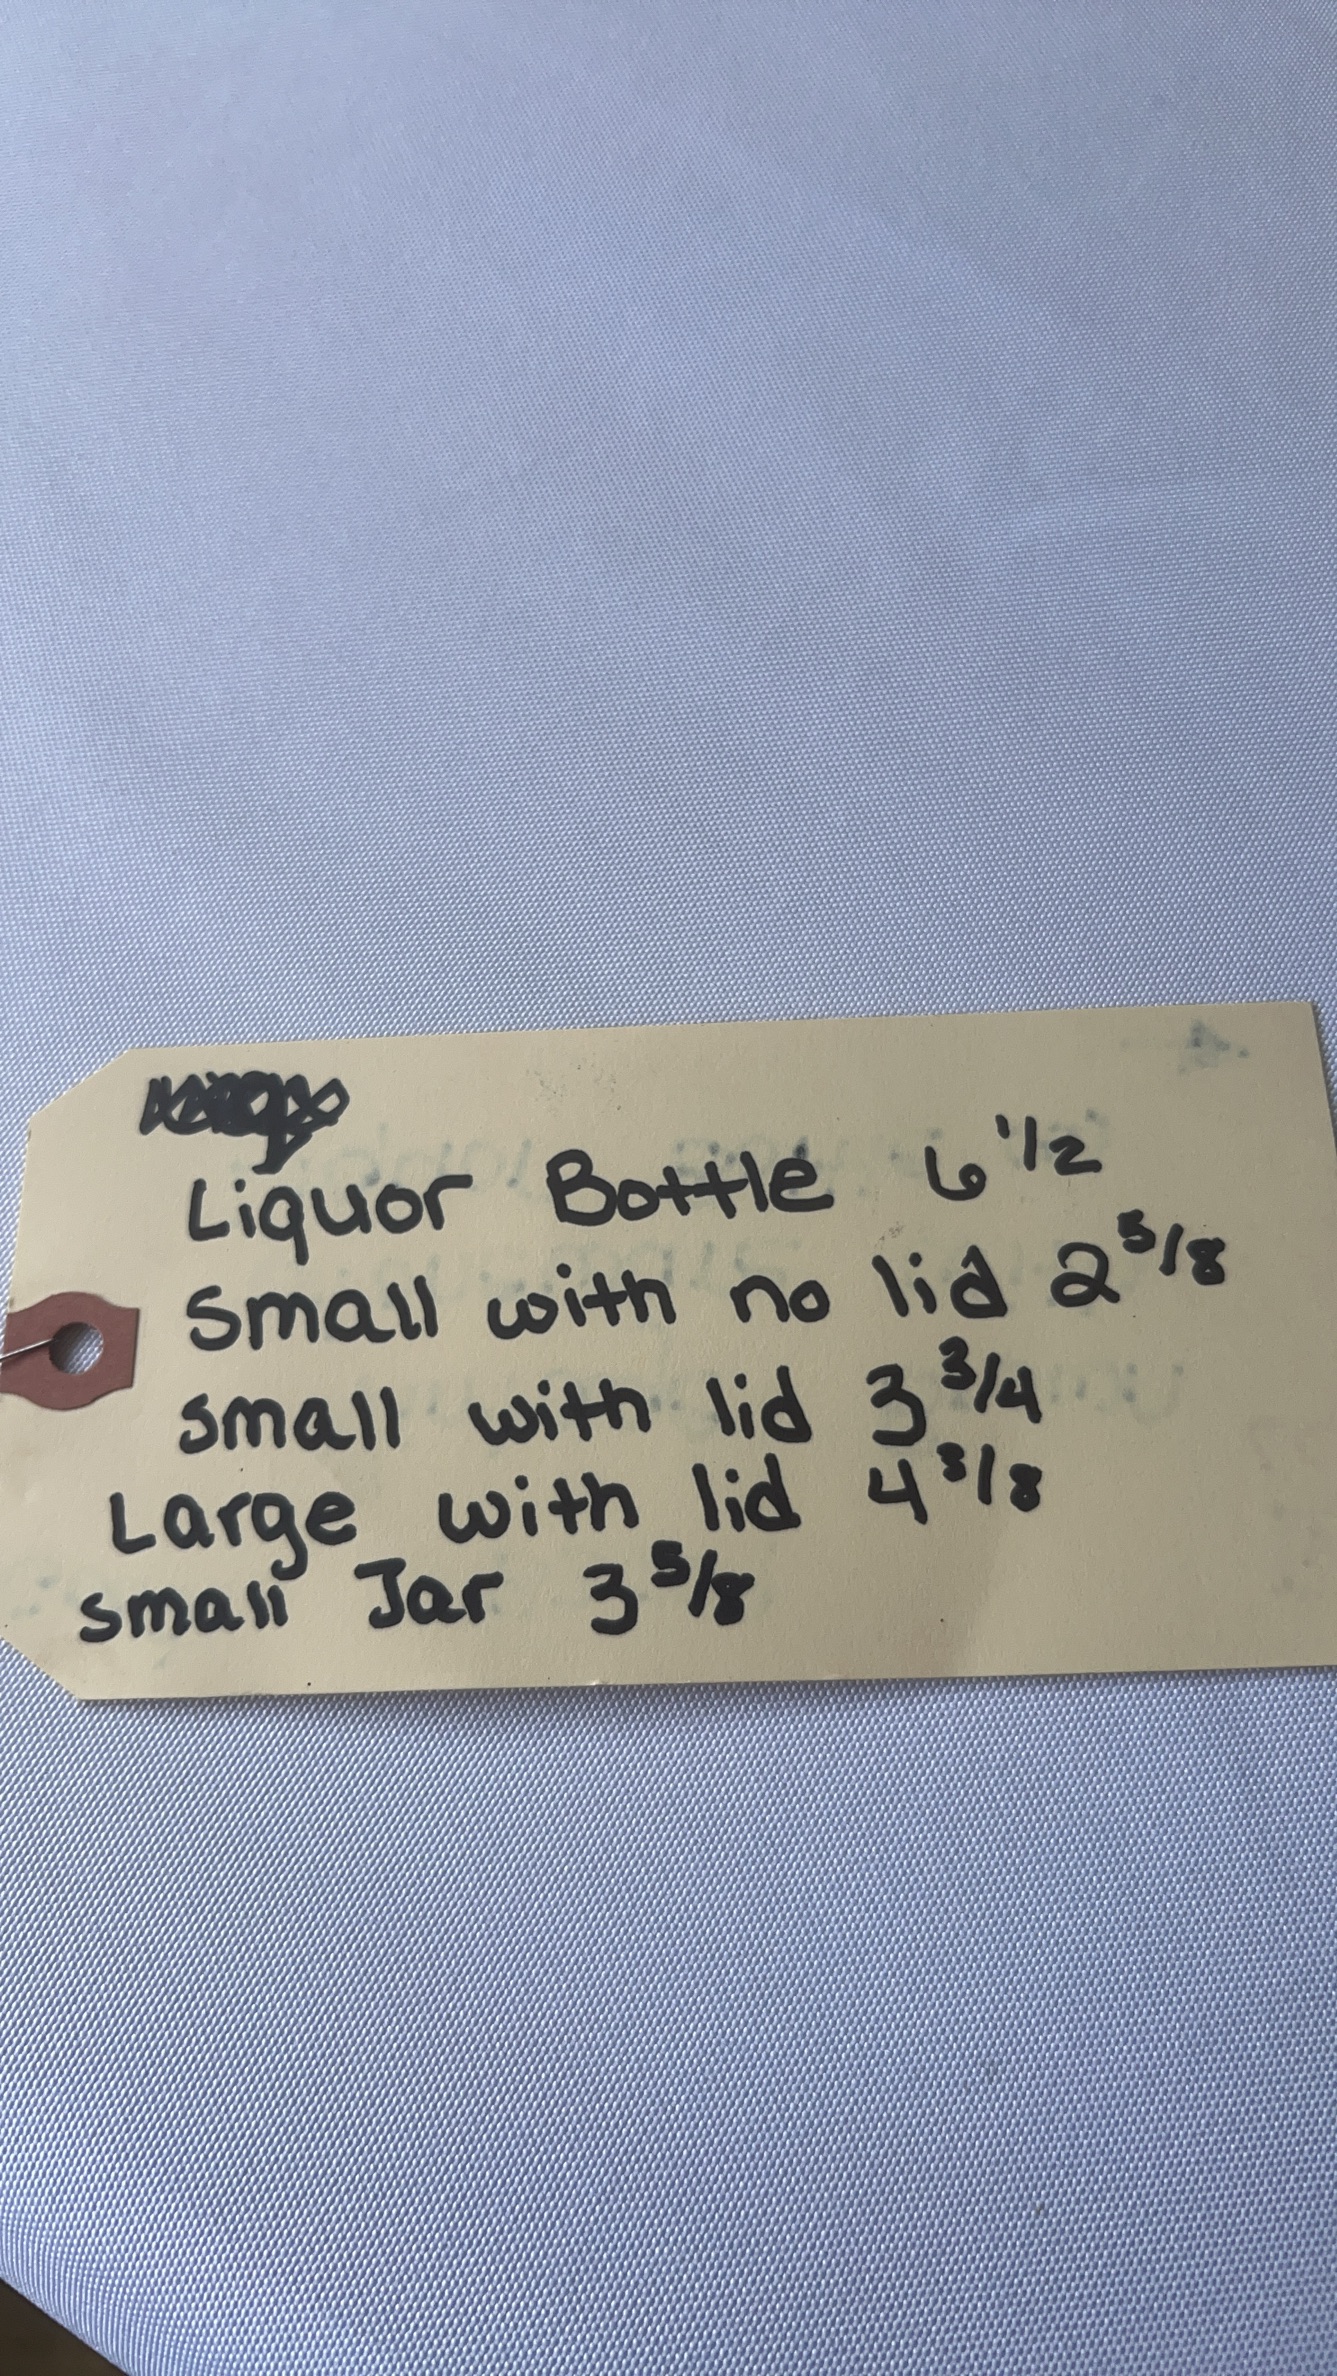 Liquor Bottle 6 1/2
Small with no lid 2 5/8
small with lid 3 3/4
Large with lid 4 3/8
small Jar 3 5/8